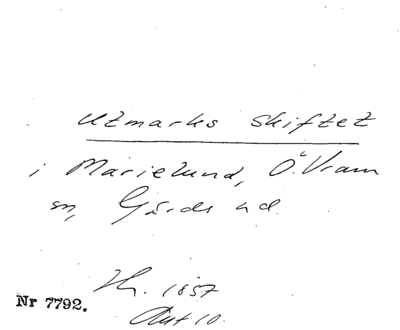 Utmarks skiftet
i Marielund, Ö. Vram
sn, Gärds hd.
Th. 1857
Akt 10.
Nr 7792.